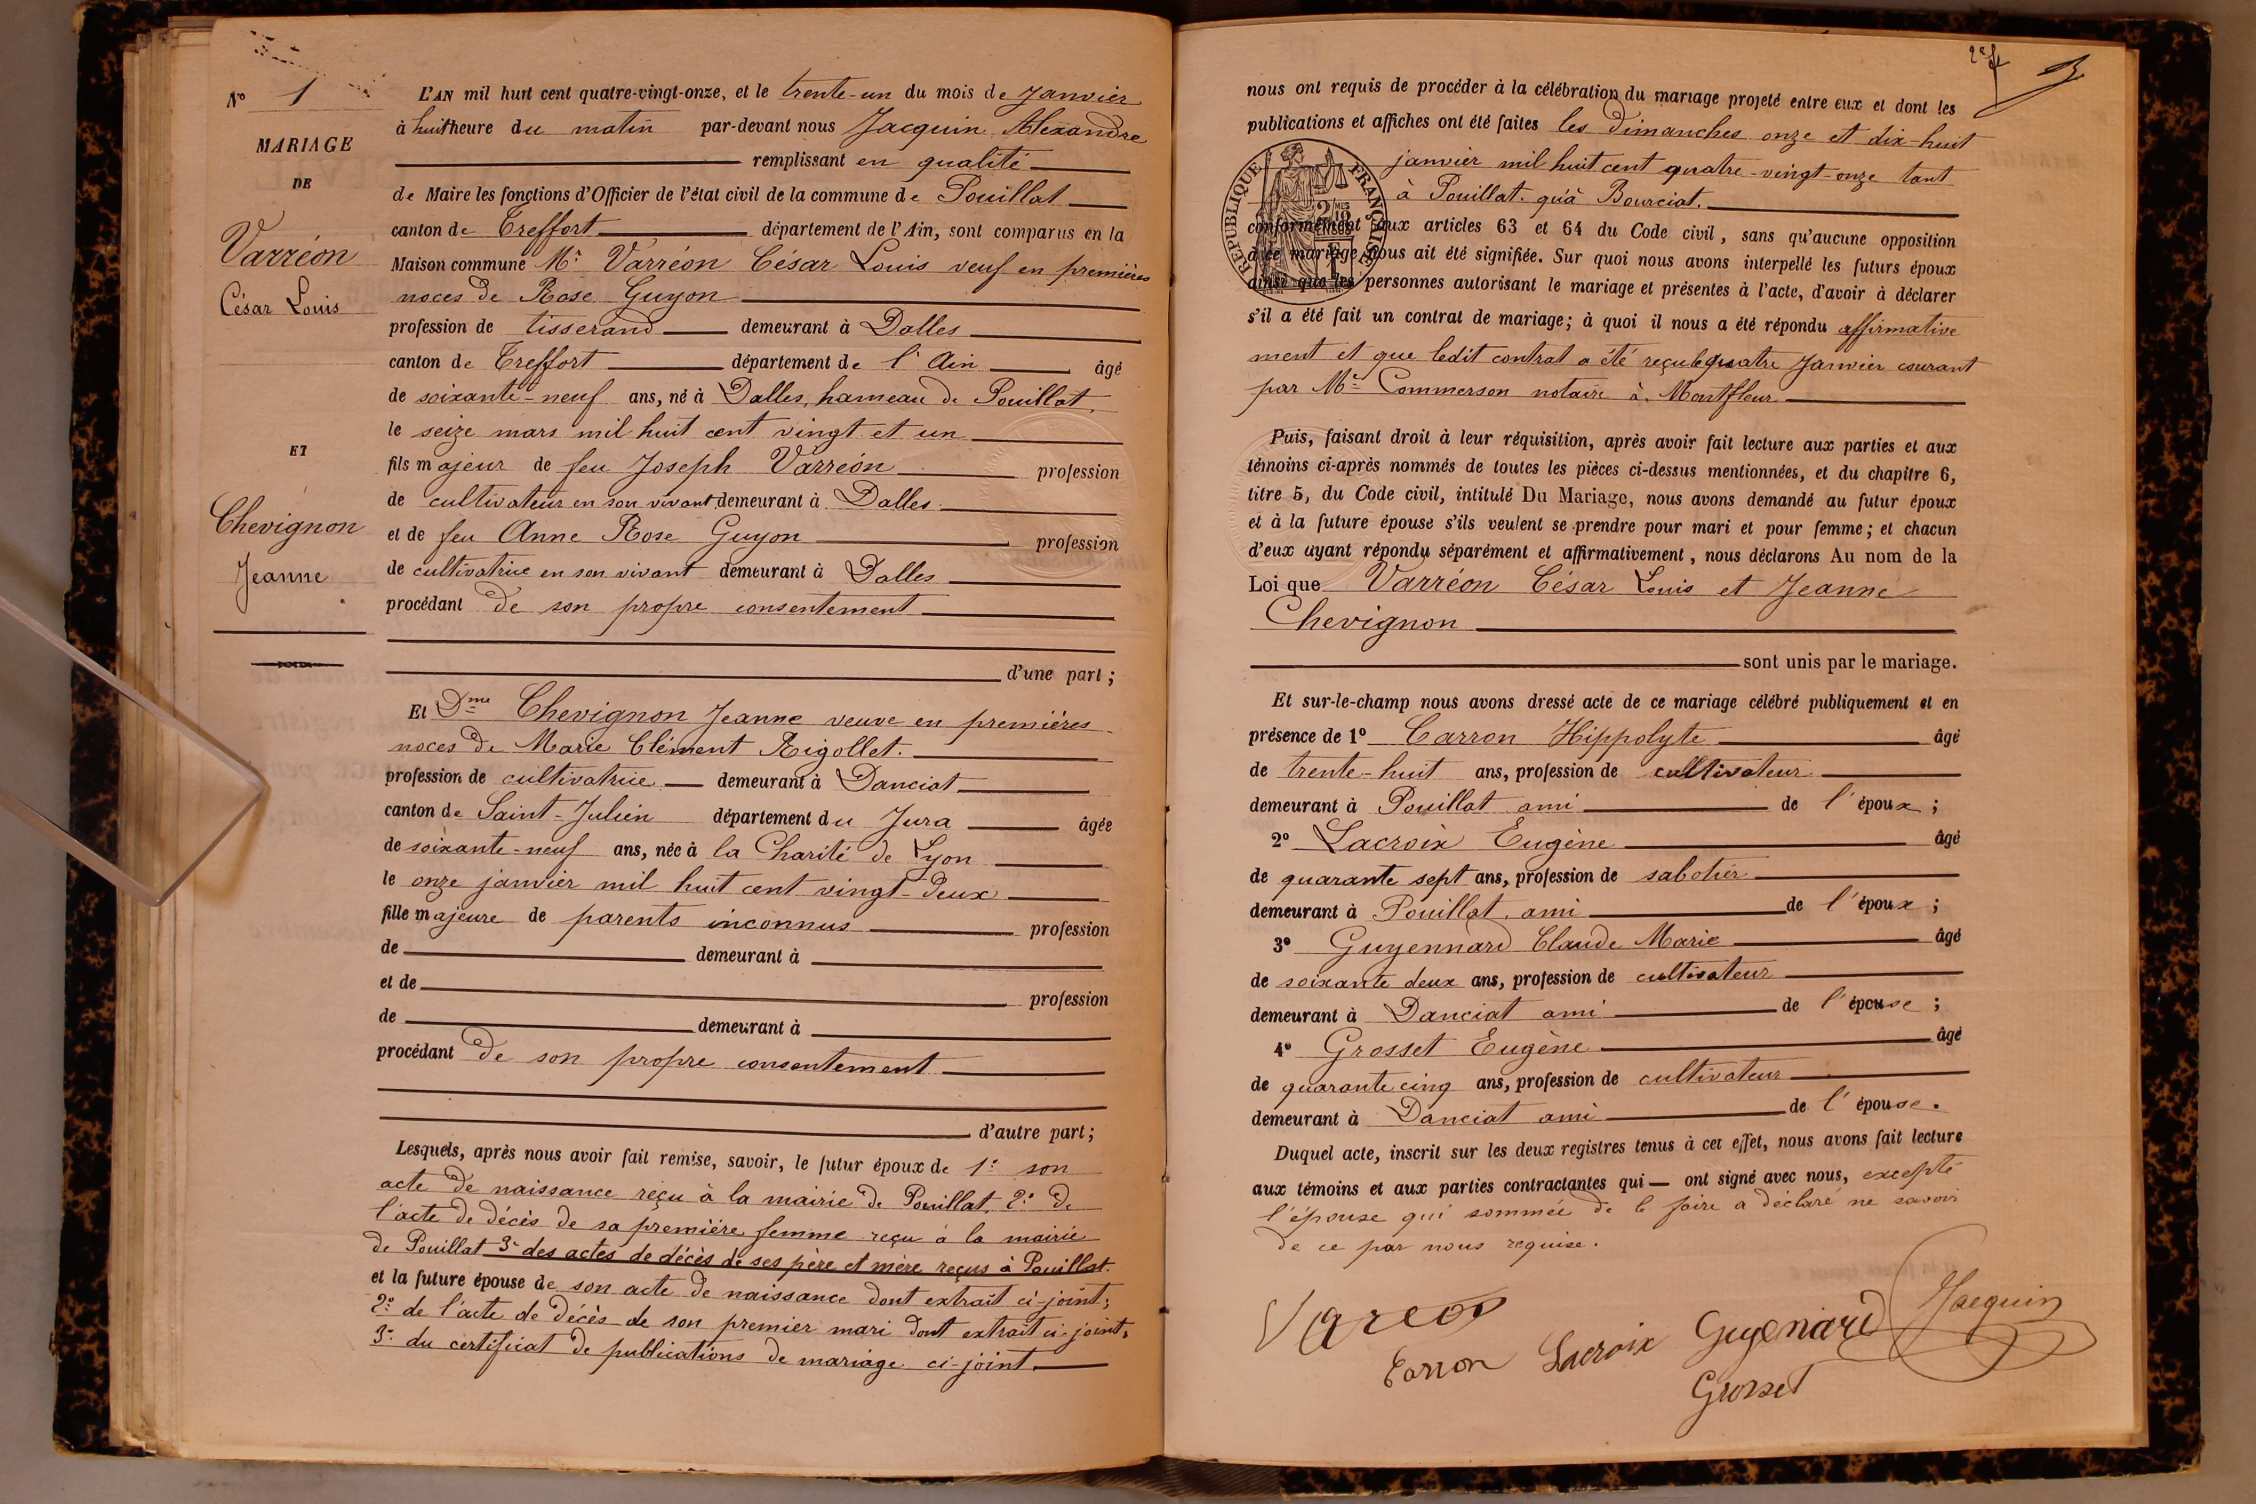 N° 1
MARIAGE
DE
Varréon
César Louis
ET
Chevignon
Jeanne
L'AN mil huit cent quatre-vingt-onze, et le trente-un du mois de Janvier
à huit heure du matin par-devant nous Jacquin Alexandre
remplissant en qualité
de Maire les fonctions d'Officier de l'état civil de la commune de Pouillat
canton de Treffort département de l'Ain, sont comparus en la
Maison commune Mr Varréon César Louis veuf en premières
noces de Rose Guyon
profession de tisserand demeurant à Dalles
canton de Treffort département de l'Ain âgé
de soixante-neuf ans, né à Dalles, hameau de Pouillat,
le seize mars mil huit cent vingt et un
fils majeur de feu Joseph Varréon profession
de cultivateur en son vivant demeurant à Dalles
et de feu Anne Rose Guyon profession
de cultivatrice en son vivant demeurant à Dalles
procédant de son propre consentement
d'une part ;
Et Dme Chevignon Jeanne veuve en premières
noces de Marie Clément Rigollet.
profession de cultivatrice demeurant à Danciat
canton de Saint-Julien département du Jura âgée
de soixante-neuf ans, née à la Charité de Lyon
le onze janvier mil huit cent vingt-deux
fille majeure de parents inconnus profession
de demeurant à
et de profession
de demeurant à
procédant de son propre consentement
d'autre part ;
Lesquels, après nous avoir fait remise, savoir, le futur époux de 1° son
acte de naissance reçu à la mairie de Pouillat, 2° de
l'acte de décès de sa première femme reçu à la mairie
de Pouillat 3° des actes de décès de ses père et mère reçus à Pouillat.
et la future épouse de son acte de naissance dont extrait ci-joint;
2° de l'acte de décès de son premier mari dont extrait ci-joint;
3° du certificat de publications de mariage ci-joint.
nous ont requis de procéder à la célébration du mariage projeté entre eux et dont les
publications et affiches ont été faites les dimanches onze et dix-huit
janvier mil huit cent quatre-vingt-onze tant
à Pouillat. qu'à Bourciat.
RÉPUBLIQUE FRANÇAISE
conformément aux articles 63 et 64 du Code civil, sans qu'aucune opposition
à ce mariage nous ait été signifiée. Sur quoi nous avons interpellé les futurs époux
ainsi que les personnes autorisant le mariage et présentes à l'acte, d'avoir à déclarer
s'il a été fait un contrat de mariage; à quoi il nous a été répondu affirmative
ment et que ledit contrat a été reçu le quatre Janvier courant
par Me Commerson notaire à Montfleur
Puis, faisant droit à leur réquisition, après avoir fait lecture aux parties et aux
témoins ci-après nommés de toutes les pièces ci-dessus mentionnées, et du chapitre 6,
titre 5, du Code civil, intitulé Du Mariage, nous avons demandé au futur époux
et à la future épouse s'ils veulent se prendre pour mari et pour femme; et chacun
d'eux ayant répondu séparément et affirmativement, nous déclarons Au nom de la
Loi que Varréon César Louis et Jeanne
Chevignon
sont unis par le mariage.
Et sur-le-champ nous avons dressé acte de ce mariage célébré publiquement et en
présence de 1° Carron Hippolyte âgé
de trente-huit ans, profession de cultivateur
demeurant à Pouillat ami de l'époux ;
2° Lacroix Eugène âgé
de quarante sept ans, profession de sabotier
demeurant à Pouillat, ami de l'époux ;
3° Guyennard Claude Marie âgé
de soixante deux ans, profession de cultivateur
demeurant à Danciat ami de l'épouse ;
4° Grosset Eugène âgé
de quarante cinq ans, profession de cultivateur
demeurant à Danciat ami de l'épouse.
Duquel acte, inscrit sur les deux registres tenus à cet effet, nous avons fait lecture
aux témoins et aux parties contractantes qui ont signé avec nous, excepté
l'épouse qui sommée de le faire a déclaré ne savoir
de ce par nous requise.
Vareon
Carron Lacroix Guyenard Jacquin
Grosset